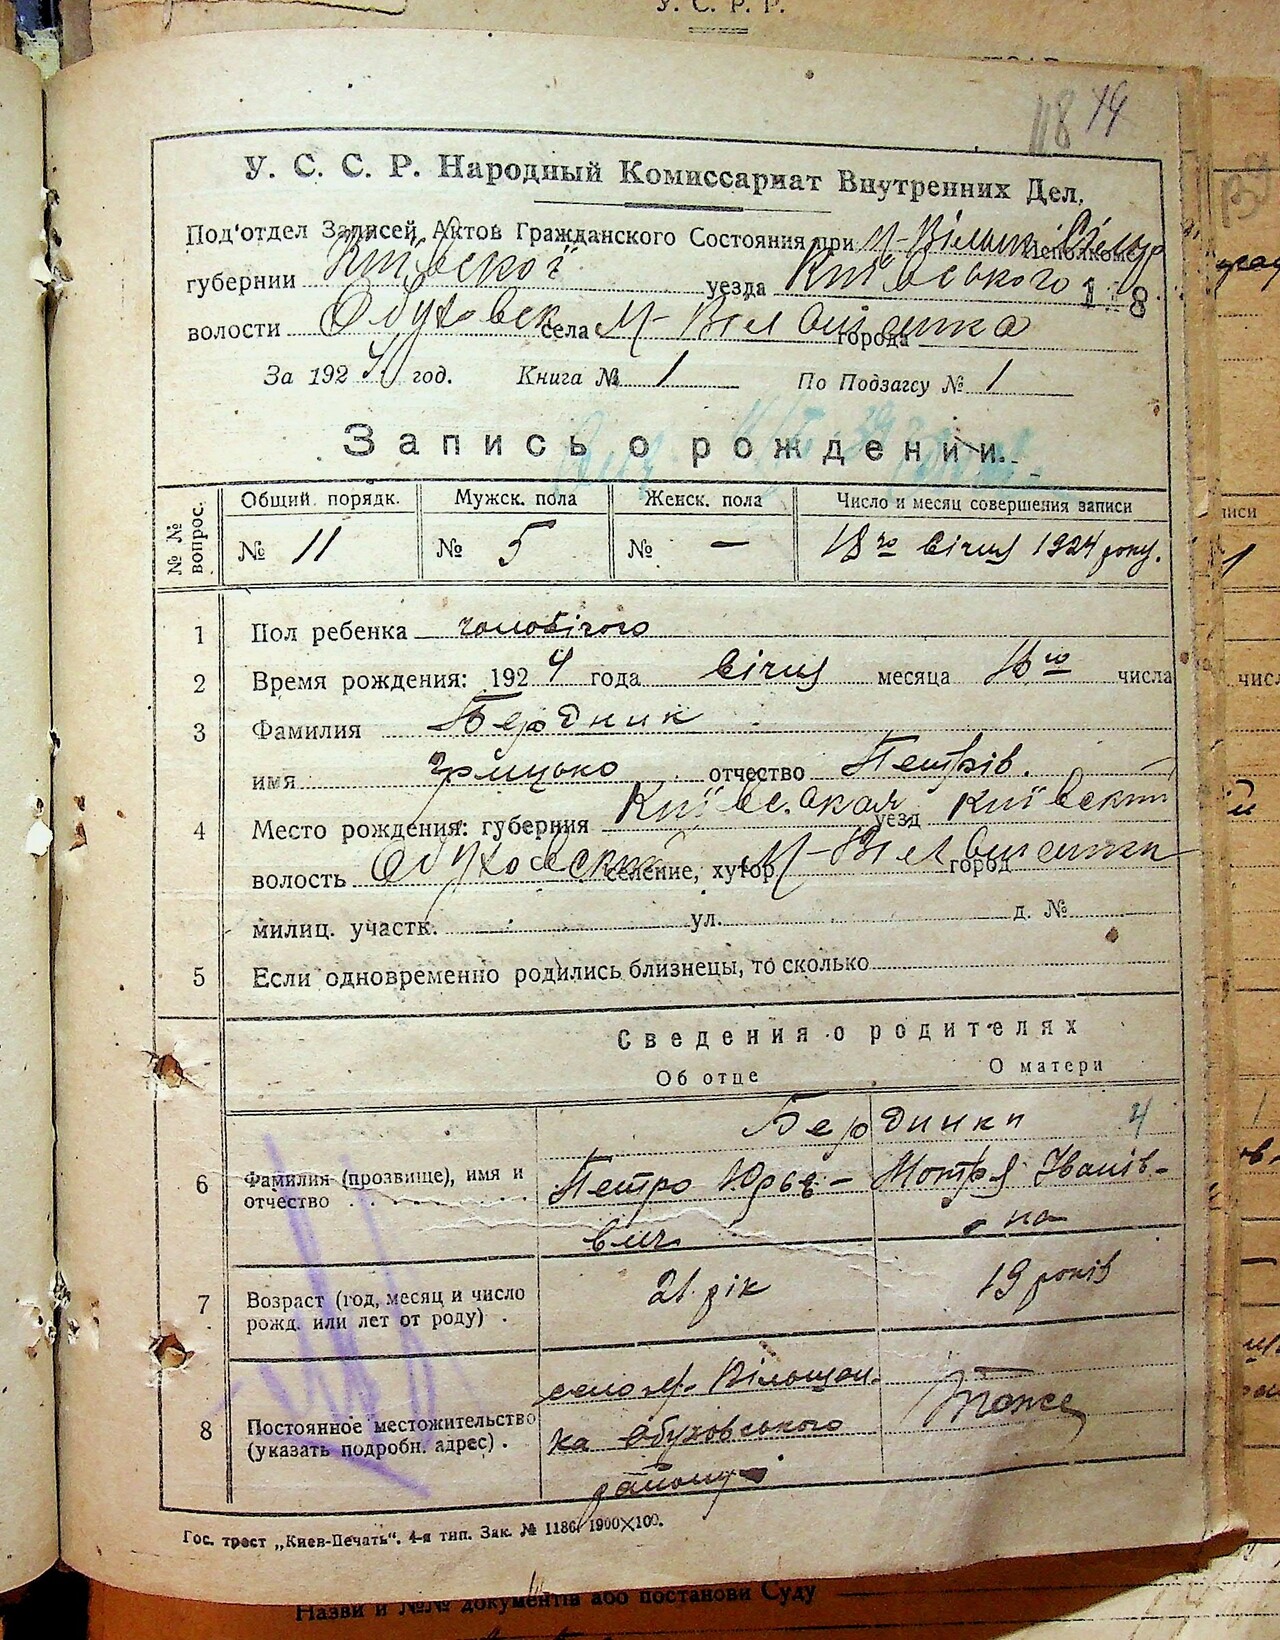 У. С. Р. Р.
118 14
У. С. С. Р. Народный Комиссариат Внутренних Дел.
Под'отдел Записей Актов Гражданского Состояния при М-Вільшан. Исполкоме
губернии Київської уезда Київського 118
волости Обуховск села М-Вільшанка города
За 1924 год. Книга № 1 По Подзагсу № 1
Запись о рождении.
№ № вопрос. Общий порядк. Мужск. пола Женск. пола Число и месяц совершения записи
№ 11 № 5 № — 18го січня 1924 року.
1 Пол ребенка чоловічого
2 Время рождения: 1924 года січня месяца 16го числа
3 Фамилия Бердник
имя Грицько отчество Петрів.
4 Место рождения: губерния Київская уезд Київский
волость Обуховский селение, хутор М-Вільшанка город
милиц. участк. ул. д. №
5 Если одновременно родились близнецы, то сколько
Сведения о родителях
Об отце О матери
Бердники 4
6 Фамилия (прозвище), имя и отчество Петро Юрьевич Мотря Іванівна
7 Возраст (год, месяц и число рожд. или лет от роду) 21 рік 19 років
8 Постоянное местожительство (указать подробн. адрес) село М. Вільшанка Обуховського району Тоже
Гос. трест „Киев-Печать“. 4-я тип. Зак. № 1186. 1900×100.
Назви и №№ документів або постанови Суду